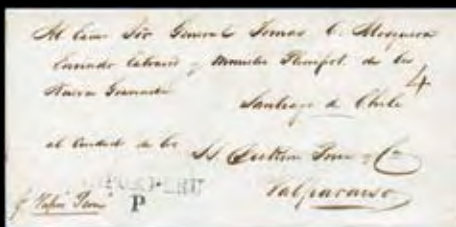 Al Exmo Sôr General Tomas C. Mosquera
Enviado Estraord y Ministro Plenipot. de la
Nueva Granada 4
Santiago de Chile
al Cuidado de los SS
Valparaiso
P
pr Vapor Peru